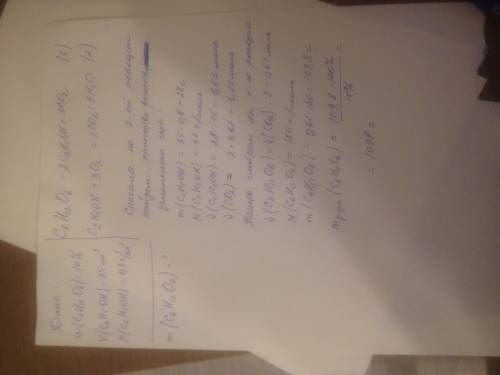 Дано:
w(C₆H₁₂O₆) = 10%
V(C₂H₅OH) = 35 см³
ρ(C₂H₅OH) = 0,8 г/см³
m(C₆H₁₂O₆) - ?
C₆H₁₂O₆ = 2C₂H₅OH + 2CO₂ (1)
C₂H₅OH + 3O₂ = 2CO₂ + 3H₂O (2)
Сначала по 2-ой реакции
найдем количество
m(C₂H₅OH) = 35·0,8 = 28г
M(C₂H₅OH) = 46 г/моль
ν(C₂H₅OH) = 28:46 = 0,61 моль
ν(CO₂) = 2·0,61 = 1,22 моль
по 1-ой реакции
ν(C₆H₁₂O₆) = ν(CO₂):2 = 0,61 моль
M(C₆H₁₂O₆) = 180 г/моль
m(C₆H₁₂O₆) = 0,61·180 = 109,8 г
(C₆H₁₂O₆) = 109,8·100% / 10% =
= 1098 г